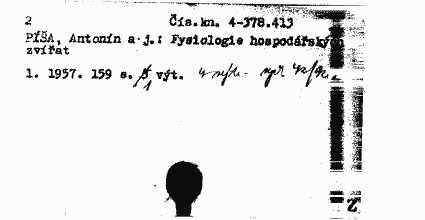 2 Čís.kn. 4-378.413
PÍŠA, Antonín a j.: Fysiologie hospodářských
zvířat
1. 1957. 159 s. 1 výt.
2